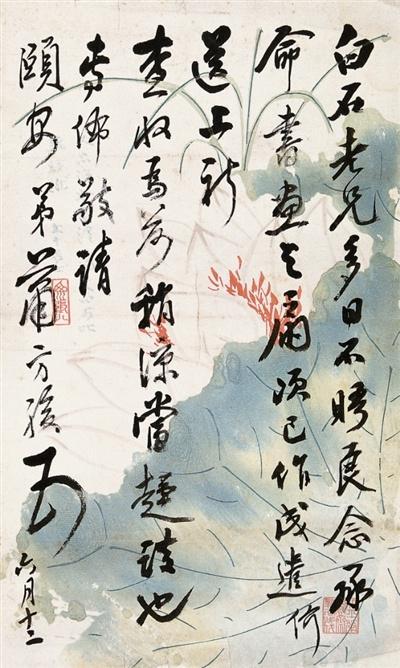 白石老兄多日不晤良念承
命書畫之扇頃已作成遣价
送上祈
查收為荷稍涼當趨談也
專佈敬請
頤安弟蕭方駿
六月十二